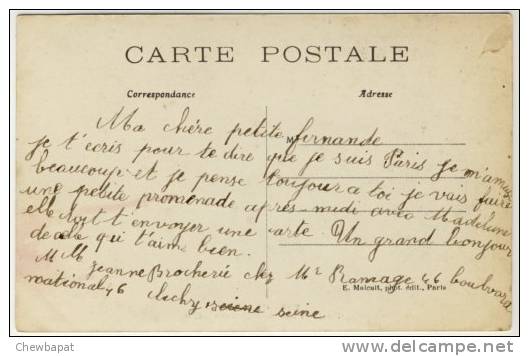 CARTE POSTALE
Correspondance
Adresse
Ma chère petite fernande
M
je t'ecris pour te dire que je suis Paris je m'amuse
beaucoup et je pense toujour a toi je vais faire
une petite promenade après-midi avec Madeleine
elle doit t'envoyer une carte. Un grand bonjour
de celle qui t'aime bien.
M^lle Jeanne Brocherie chez M^r Ramage 46 boulevard
national 46 Clichy seine seine
E. Malcuit, phot. édit., Paris
© Chewbapat
http://www.delcampe.net